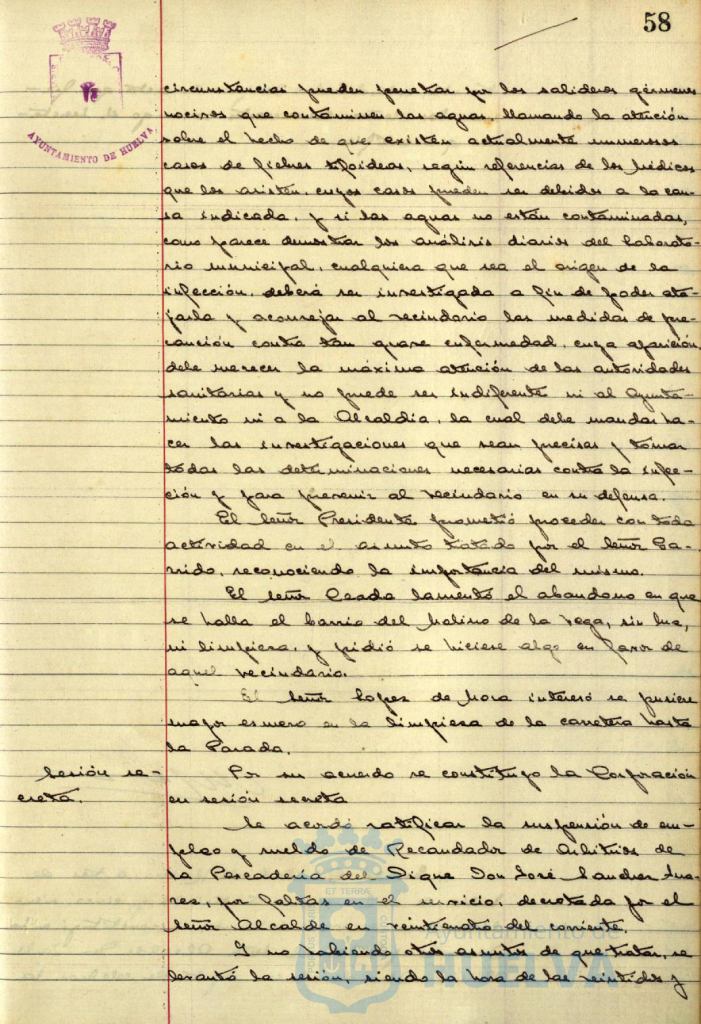 58
AYUNTAMIENTO DE HUELVA
circunstancias pueden penetrar por los salideros gérmenes
nocivos que contaminen las aguas, llamando la atención
sobre el hecho de que existen actualmente numerosos
casos de fiebres tifoideas, según referencias de los Médicos
que los asisten, cuyos casos pueden ser debidos a la cau-
sa indicada, y si las aguas no están contaminadas,
como parece demostrar los análisis diarios del Laborato-
rio municipal, cualquiera que sea el origen de la
infección, deberá ser investigada a fin de poder ata-
jarla y aconsejar al vecindario las medidas de pre-
caución contra tan grave enfermedad, cuya aparición
debe merecer la máxima atención de las autoridades
sanitarias y no puede ser indiferente ni al Ayunta-
miento ni a la Alcaldía, la cual debe mandar ha-
cer las investigaciones que sean precisas y tomar
todas las determinaciones necesarias contra la infec-
ción y para prevenir al vecindario en su defensa.
El Señor Presidente prometió proceder con toda
actividad en el asunto tratado por el Señor Ga-
rrido, reconociendo la importancia del mismo.
El señor lamentó el abandono en que
se halla el barrio del Molino de la Vega, sin luz,
ni limpieza, y pidió se hiciese algo en favor de
aquel vecindario.
El Señor Lopez de Mora interesó se pusiere
mayor esmero en la limpieza de la carretera hasta
la Parada.
Sesión se-
creta.
Por su acuerdo se constituyo la Corporación
en sesión secreta
Se acordó ratificar la suspensión de em-
pleo y sueldo de Recaudador de Arbitrios de
la Pescadería del Dique Don José Sanchez Sua-
rez, por faltas en el servicio, decretada por el
Señor Alcalde en veinticuatro del corriente.
Y no habiendo otros asuntos de que tratar, se
levantó la sesión, siendo la hora de las veintidos y
ET TERRÆ
Ayuntamiento
HUELVA